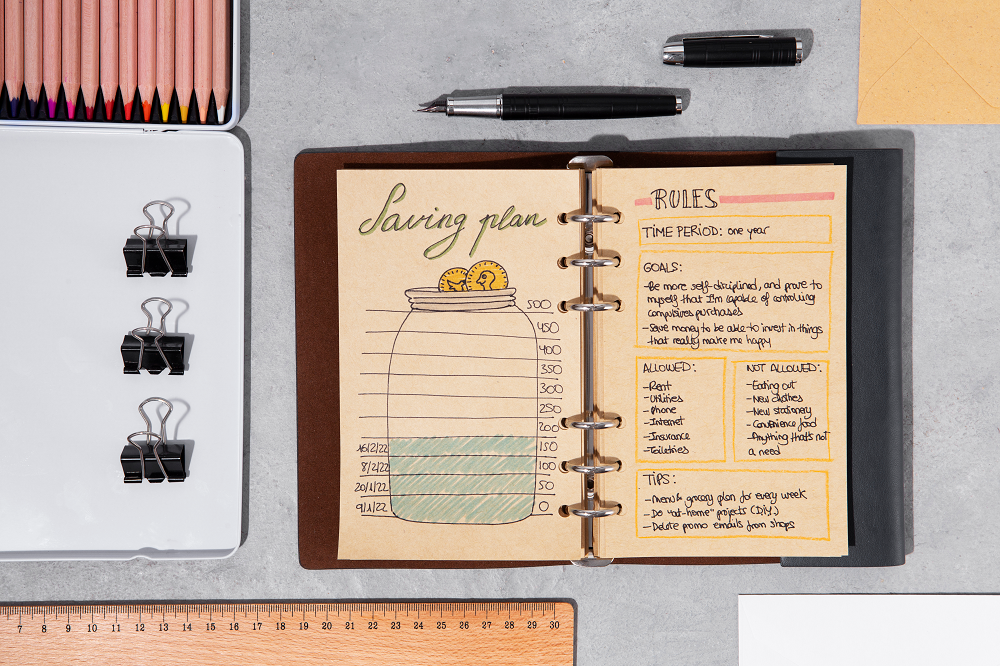 Saving plan
500
450
400
350
300
250
200
16/2/22 150
8/2/22 100
20/1/22 50
9/1/22 0
RULES
TIME PERIOD: one year
GOALS:
-Be more self-disciplined, and prove to
myself that I'm capable of controlling
compulsives purchases
-Save money to be able to invest in things
that really make me happy
ALLOWED:
-Rent
-Utilities
-Phone
-Internet
-Insurance
-Toiletries
NOT ALLOWED:
-Eating out
-New clothes
-New stationery
-Convenience food
-Anything that's not
a need
TIPS:
-Menu & grocery plan for every week
-Do "at-home" projects (DIY)
-Delete promo emails from shops
7 8 9 10 11 12 13 14 15 16 17 18 19 20 21 22 23 24 25 26 27 28 29 30